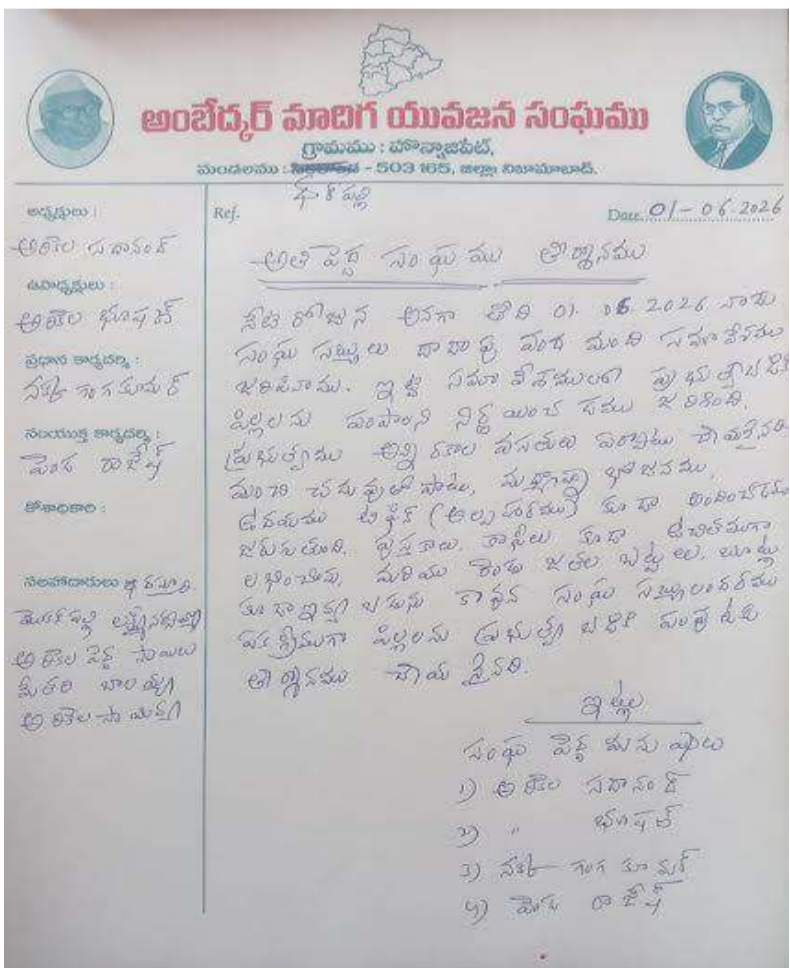 అంబేద్కర్ మాదిగ యువజన సంఘము
గ్రామము : హొన్నాజిపేట్,
మండలము : సిరికొండ - 503 165, జిల్లా నిజామాబాద్.
ధర్పల్లి
Ref.
Date. 01-06-2026
అధ్యక్షులు :
అరికెల సదానంద్
ఉపాధ్యక్షులు :
అరికెల భూషణ్
ప్రధాన కార్యదర్శి :
నక్క గంగకూమర్
సంయుక్త కార్యదర్శి :
పెండ రాజేష్
కోశాధికారి :
సలహాదారులు
లక్ష్మీనర్సయ్య
అరికెల పెద్ద సాయిలు
మేతరి బాలయ్య
అరికెల సాయన్న
అతి పెద్ద సంఘము తీర్మానము
నేటి రోజున అనగా తేది 01.06.2026 నాడు
సంఘ సభ్యులు దాదాపు వంద మంది సమావేశము
జరిపినాము. ఇట్టి సమావేశములో ప్రభుత్వబడికి
పిల్లలను పంపాలని నిర్ణయించడము జరిగింది.
ప్రభుత్వము అన్ని రకాల వసతులు ఏర్పాటు చేయనైనది.
మంచి చదువుతో పాటు, మధ్యాహ్న భోజనము,
ఉదయము టిఫిన్ (అల్పహారము) కూడా అందించడము
జరుగుతుంది. పుస్తకాలు, కాపీలు కూడా ఉచితముగా
లభించును, మరియు రెండు జతల బట్టలు, బూట్లు
కూడా ఇవ్వబడును కావున సంఘ సభ్యులందరము
ఏకగ్రీవముగా పిల్లలను ప్రభుత్వ బడికి పంపుటకు
తీర్మానము చేయనైనది.
ఇట్లు
సంఘ పెద్ద మనుషులు
1) అరికెల సదానంద్
2) " భూషణ్
3) నక్క గంగకూమర్
4) పెండ రాజేష్